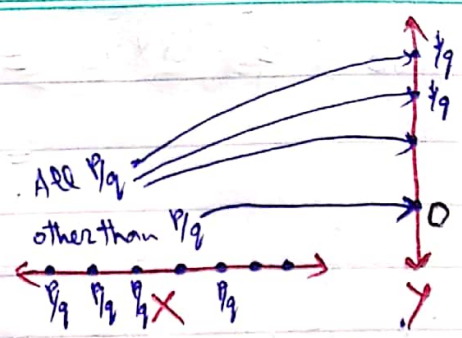 1/q
1/q
All P/q
other than P/q
0
P/q P/q P/q X P/q
Y